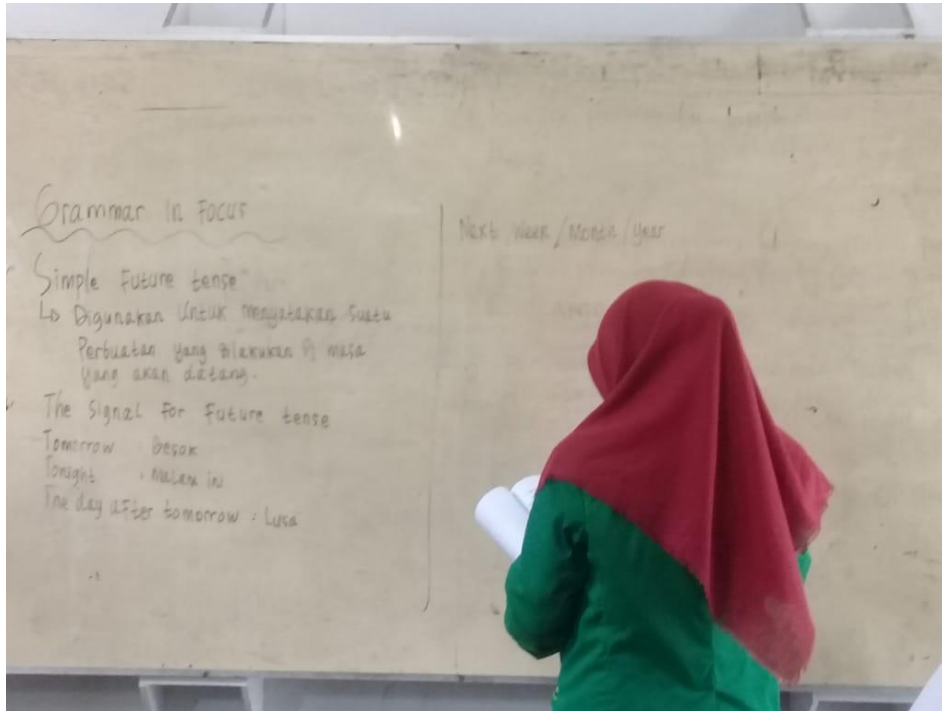 Grammar in Focus
Simple Future tense
Digunakan Untuk menyatakan Suatu
Perbuatan yang dilakukan di masa
yang akan datang.
The Signal For Future tense
Tomorrow : Besok
Tonight : Malam ini
The day after tomorrow : Lusa
Next Week/Month/Year